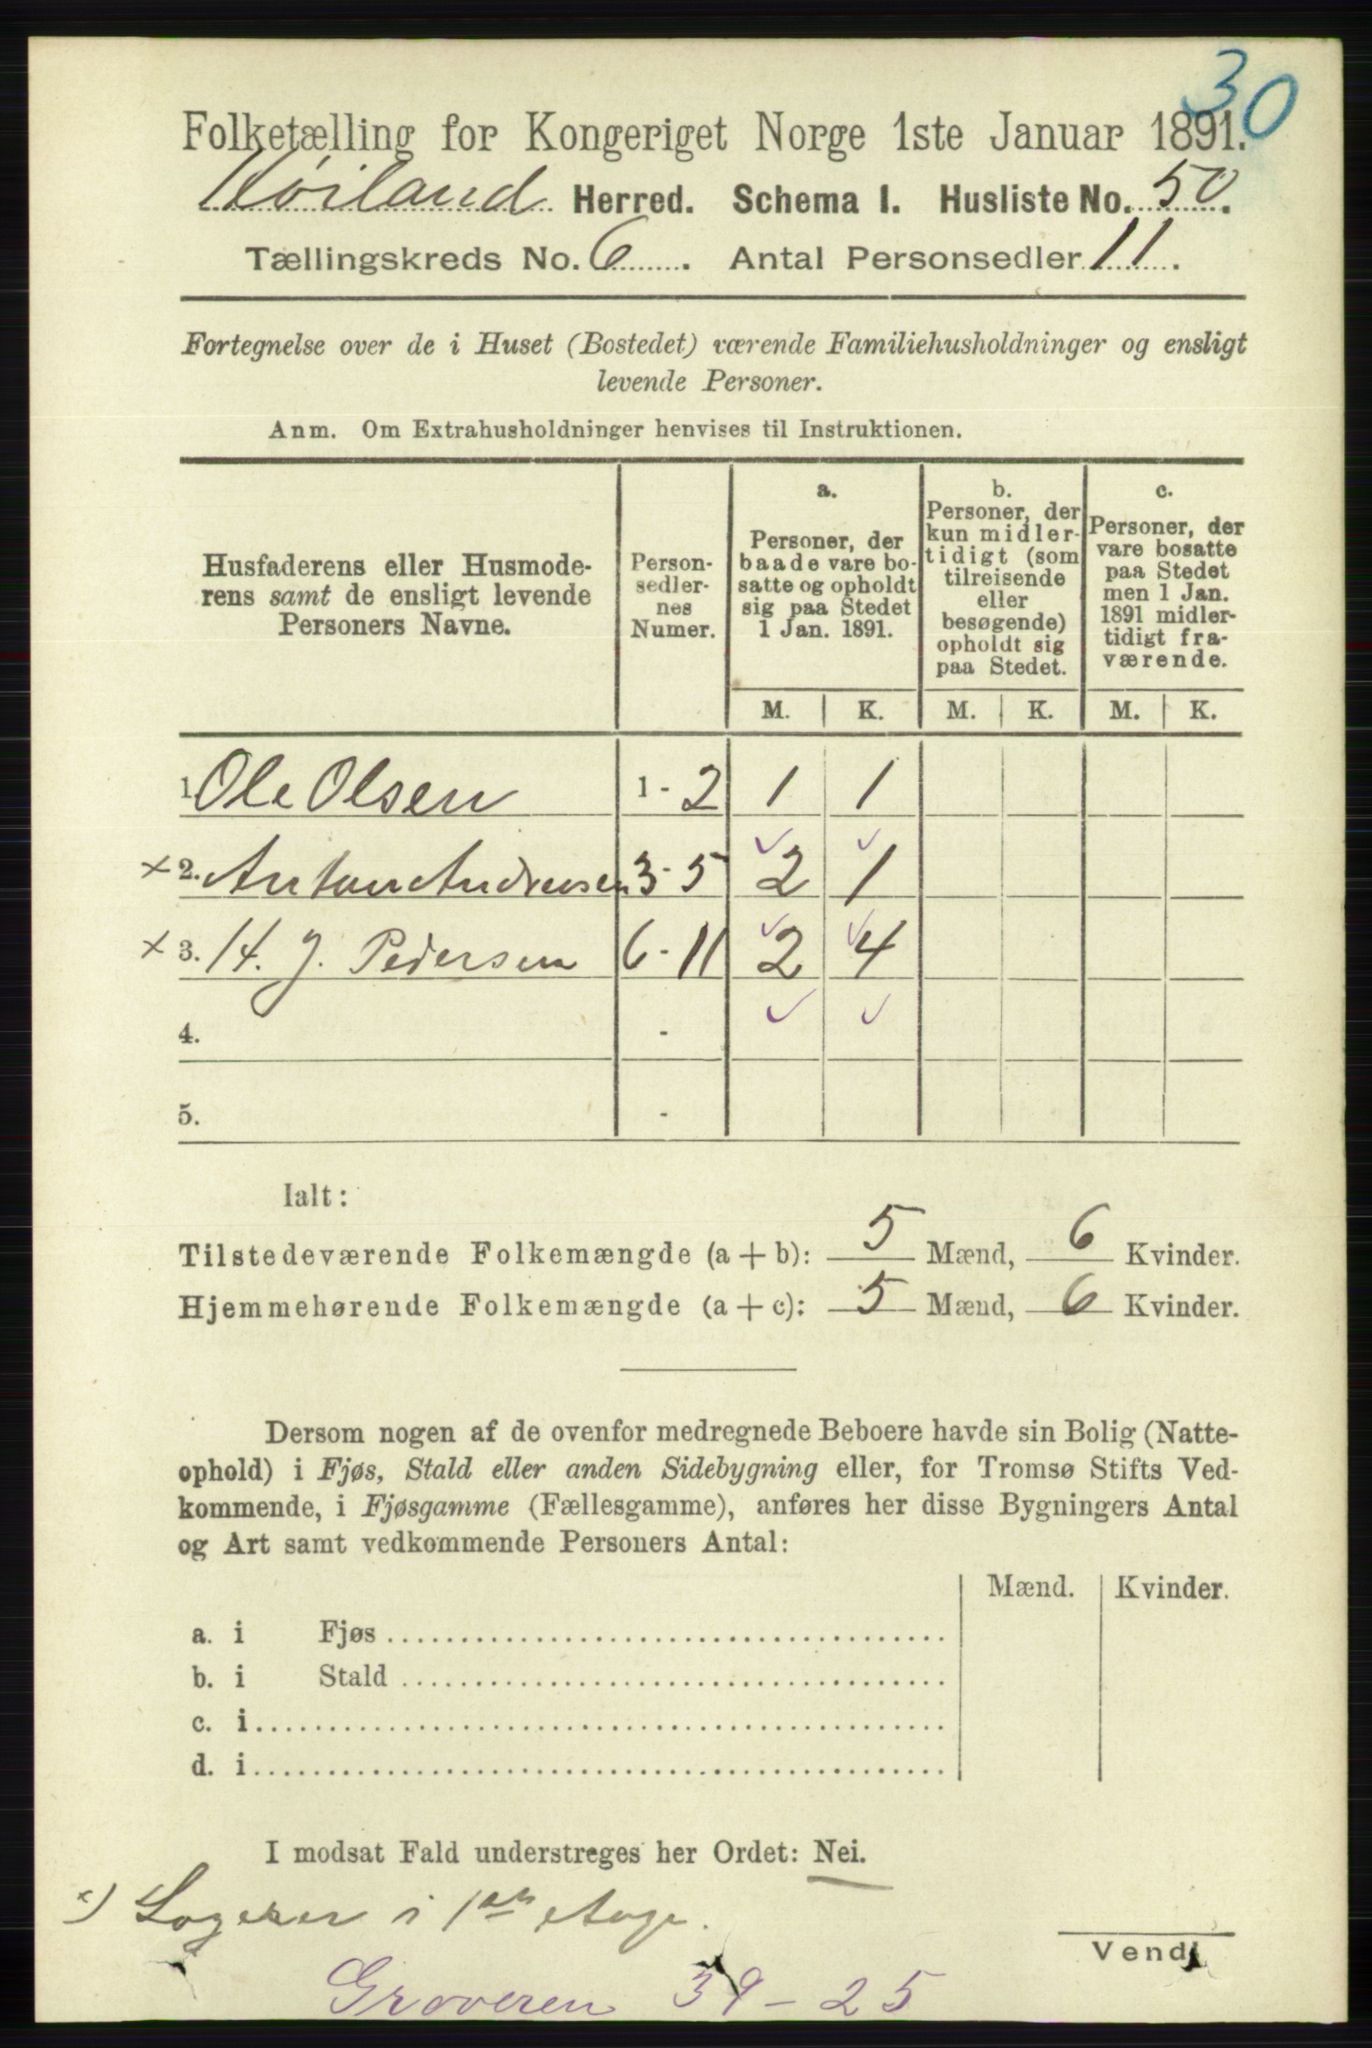 30
Folketælling for Kongeriget Norge 1ste Januar 1891.
Høiland Herred. Schema I. Husliste No. 50.
Tællingskreds No. 6. Antal Personsedler 11.
Fortegnelse over de i Huset (Bostedet) værende Familiehusholdninger og ensligt
levende Personer.
Anm. Om Extrahusholdninger henvises til Instruktionen.
Husfaderens eller Husmode-
rens samt de ensligt levende
Personers Navne.
Person-
sedler-
nes
Numer.
a.
Personer, der
baade vare bo-
satte og opholdt
sig paa Stedet
1 Jan. 1891.
b.
Personer, der
kun midler-
tidigt (som
tilreisende
eller
besøgende)
opholdt sig
paa Stedet.
c.
Personer, der
vare bosatte
paa Stedet
men 1 Jan.
1891 midler-
tidigt fra-
værende.
M. K. M. K. M. K.
1. Ole Olsen 1 - 2 1 1
x 2. Anton Andreasen 3 - 5 2 1
x 3. H. J. Pedersen 6 - 11 2 4
4. -
5. -
Ialt:
Tilstedeværende Folkemængde (a + b): 5 Mænd, 6 Kvinder.
Hjemmehørende Folkemængde (a + c): 5 Mænd, 6 Kvinder.
Dersom nogen af de ovenfor medregnede Beboere havde sin Bolig (Natte-
ophold) i Fjøs, Stald eller anden Sidebygning eller, for Tromsø Stifts Ved-
kommende, i Fjøsgamme (Fællesgamme), anføres her disse Bygningers Antal
og Art samt vedkommende Personers Antal:
Mænd. Kvinder.
a. i Fjøs
b. i Stald
c. i
d. i
I modsat Fald understreges her Ordet: Nei.
x) Logerer i 1ste Etage.
Vend!
Groveren 39 - 25